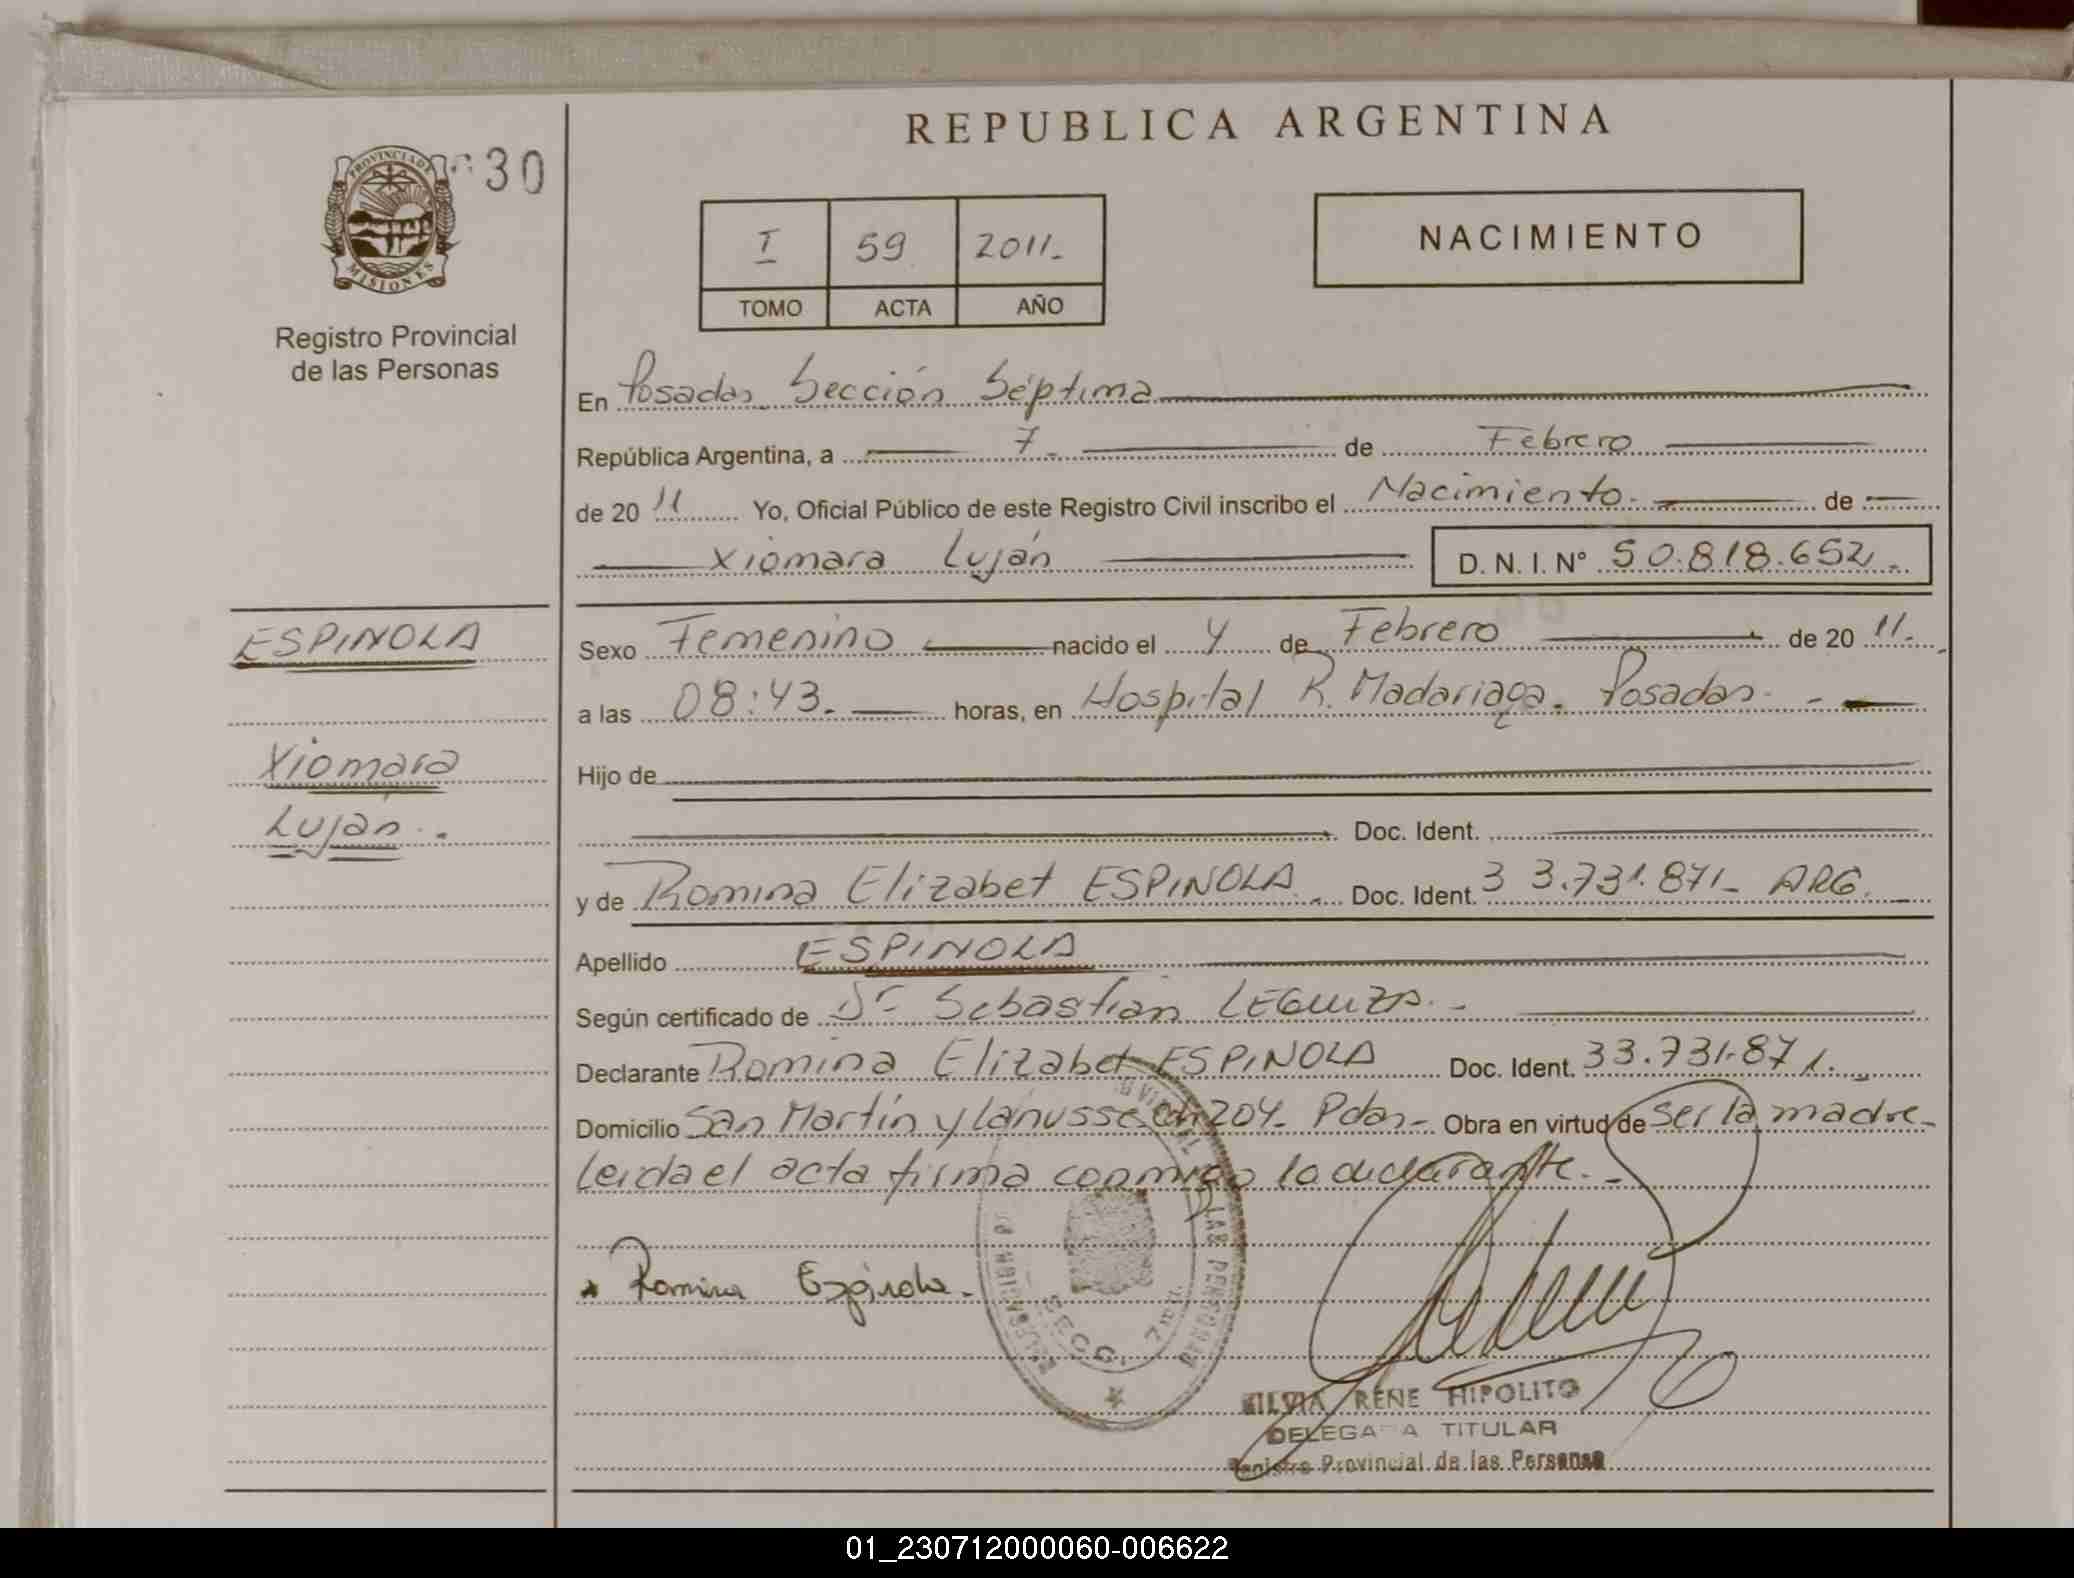 REPUBLICA ARGENTINA
PROVINCIA DE
MISIONES
30
Registro Provincial
de las Personas
I 59 2011.
TOMO ACTA AÑO
NACIMIENTO
En Posadas Sección Séptima
República Argentina, a 7 de Febrero
de 20 11 Yo, Oficial Público de este Registro Civil inscribo el Nacimiento. de
Xiomara Luján D. N. I. N° 50.818.652.
ESPINOLA
Xiomara
Luján.
Sexo Femenino nacido el 4 de Febrero de 20 11.
a las 08:43. horas, en Hospital R. Madariaga. Posadas.
Hijo de
Doc. Ident.
y de Romina Elizabet ESPINOLA Doc. Ident. 33.731.871_ ARG.
Apellido ESPINOLA
Según certificado de Dr Sebastián LEGUIZA.
Declarante Romina Elizabet ESPINOLA Doc. Ident. 33.731.871.
Domicilio San Martín y Lanusse ch 204. Pdas- Obra en virtud de ser la madre-
leída el acta firma conmigo la declarante.-
Romina Espínola.
LAS PERSONAS
SECC. 7
SILVIA RENE HIPOLITO
DELEGADA TITULAR
Registro Provincial de las Personas
01_230712000060-006622